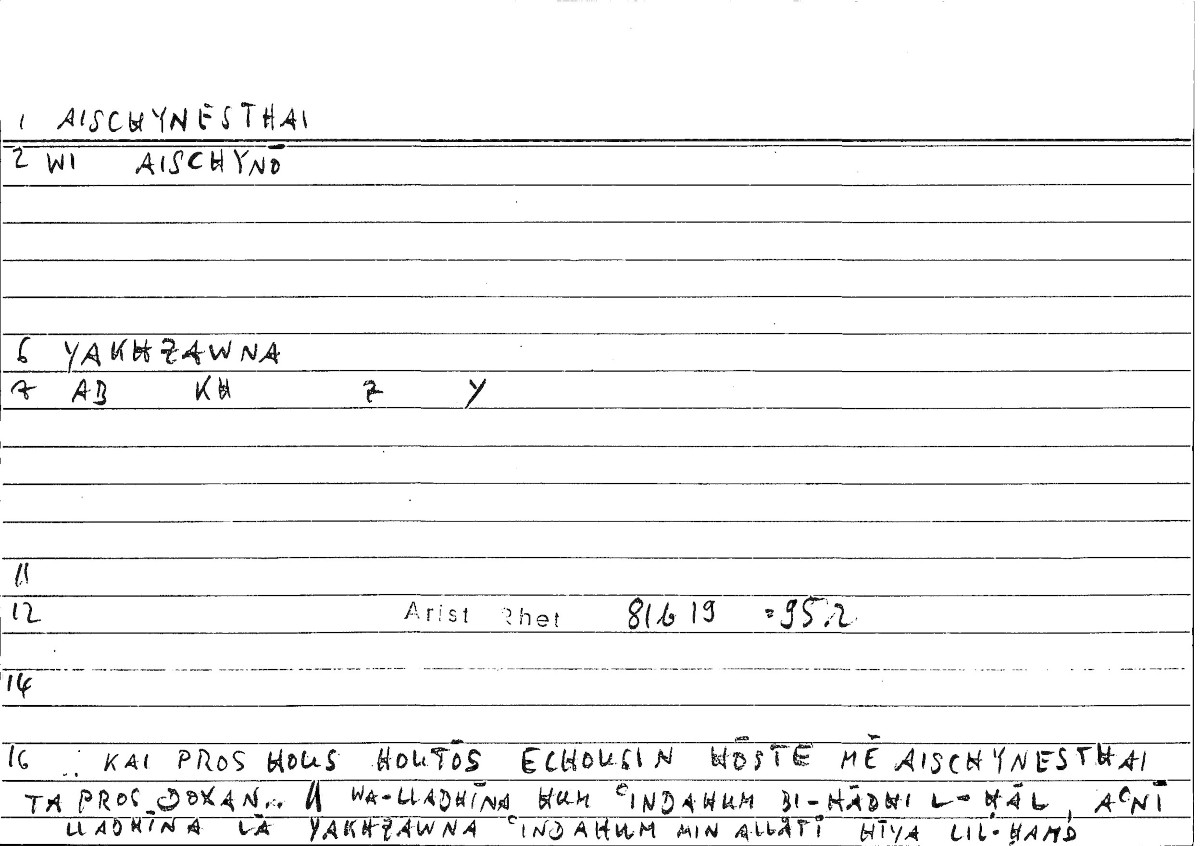 1 AISCHYNESTHAI
2 WI AISCHYNŌ
6 YAKHZAWNA
7 AB KH Z Y
11
12 Arist Rhet 81b19 =95.2
14
16 .. KAI PROS HOUS HOUTŌS ECHOUSIN HŌSTE MĒ AISCHYNESTHAI
TA PROS DOXAN.. // WA-LLADHĪNA HUM ʿINDAHUM BI-HĀDHI L-ḤĀL, AʿNĪ
LLADHĪNA LĀ YAKHZAWNA ʿINDAHUM MIN ALLĀTĪ HĪYA LIL-ḤAMD